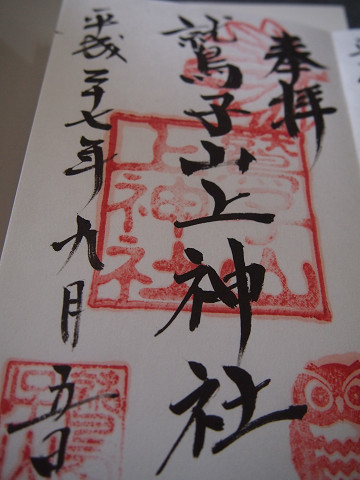 奉拝
鷲子山上神社
平成二十七年九月五日
鷲子山
上神社